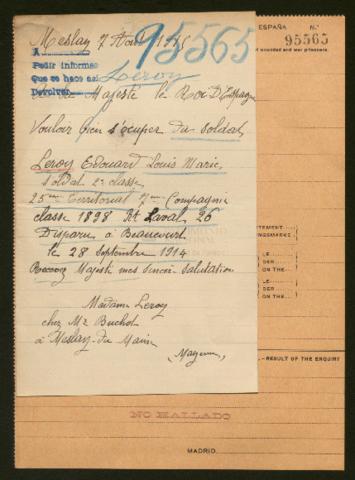 Meslay 7 Aout
95565
A
Pedir informes
Que se hace así
Devolver
Leroy
Majesté le Roi D'Espagne
Vouloir bien s'ocuper du soldat
Leroy Edouard Louis Marie
soldat 2e classe
25me territorial 7me Compagnie
classe 1898 Rt Laval 26
Disparu à Beaucourt
le 28 Septembre 1914
Majesté mes sincer salutation
Madame Leroy
chez Mr Buchot
à Meslay-du Maine
Mayenne,
ESPAÑA
N.º
95565
of wounded and war prisoners.
- RESULT OF THE ENQUIRY
NO HALLADO
MADRID